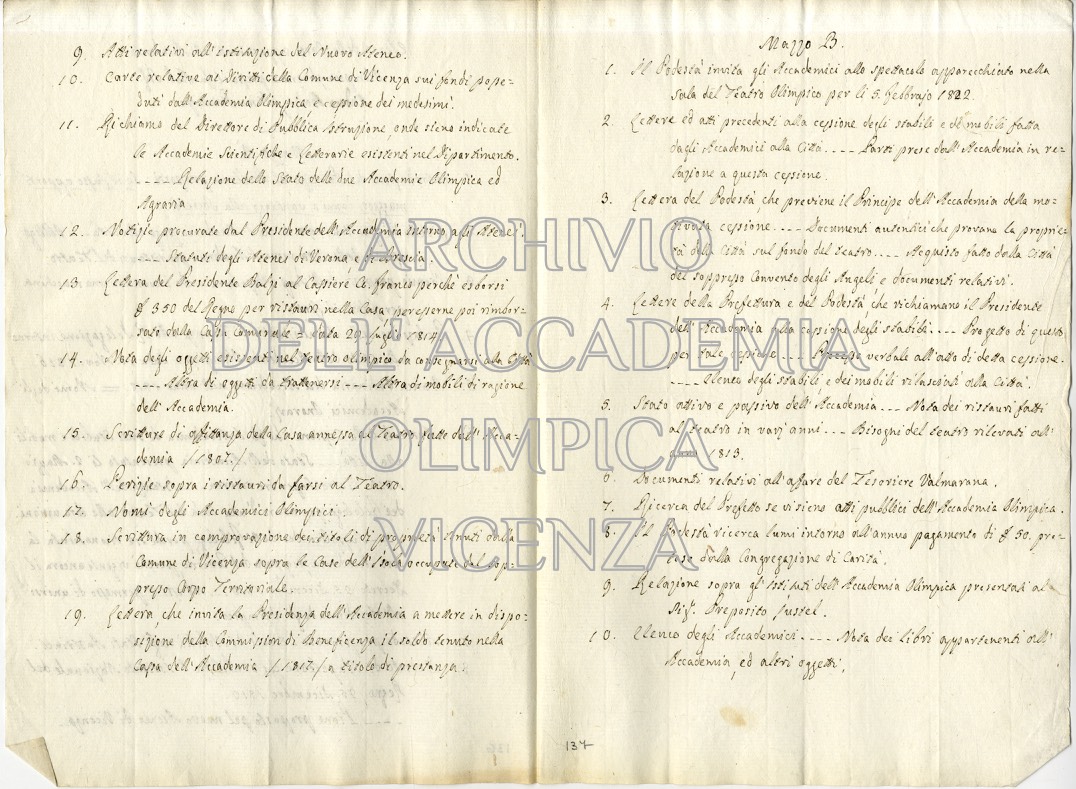 9. Atti relativi all'istituzione del Nuovo Ateneo.
10. Carte relative ai Diritti della Comune di Vicenza sui fondi posse-
duti dall'Accademia Olimpica e cessione dei medesimi.
11. Richiamo del Direttore di Pubblica Istruzione, onde sieno indicate
le Accademie Scientifiche e Letterarie esistenti nel Dipartimento.
.... Relazione dello Stato delle due Accademie Olimpica ed
Agraria
12. Notizie procurate dal Presidente dell'Accademia intorno agli Atenei.
.... Statuti degli Atenei di Verona e di Brescia.
13. Lettera del Presidente Balzi al Cassiere Co. Franco perchè esborsi
£ 350 del Regno per ristauri nella Casa per esserne poi rimbor-
sato dalla Cassa Comunale = data 29 Luglio 1814
14. Nota degli oggetti esistenti nel teatro olimpico da consegnarsi alla Città
.... Altra di oggetti da trattenersi .... Altra di mobili di ragione
dell'Accademia.
15. Scritture di affittanza della Casa annessa al Teatro fatte dall'Acca-
demia /1807./
16. Perizie sopra i ristauri da farsi al Teatro.
17. Nomi degli Accademici Olimpici
18. Scrittura in comprovazione dei titoli di proprietà tenuti dalla
Comune di Vicenza sopra le Case dell'Isola occupate dal sop-
presso Corpo Territoriale.
19. Lettera che invita la Presidenza dell'Accademia a mettere in dispo-
sizione della Commission di Beneficenza il saldo tenuto nella
Cassa dell'Accademia /1817./ a titolo di prestanza.
Mazzo B.
1. Il Podestà invita gli Accademici allo spettacolo apparecchiato nella
Sala del Teatro Olimpico per li 5. Febbrajo 1822.
2. Lettere ed atti precedenti alla cessione degli stabili e mobili fatta
dagli Accademici alla Città .... Parti prese dall'Accademia in re-
lazione a questa cessione.
3. Lettera del Podestà, che previene il Principe dell'Accademia della mo-
tivata cessione .... Documenti autentici che provano la proprie-
tà della Città sul fondo del teatro .... Acquisto fatto dalla Città
del soppresso Convento degli Angeli e documenti relativi.
4. Lettere della Prefettura e del Podestà, che richiamano il Presidente
dell'Accademia alla cessione degli stabili .... Progetto di questo
per tale cessione .... Processo verbale all'atto di detta cessione.
.... Elenco degli stabili e dei mobili rilasciati alla Città.
5. Stato attivo e passivo dell'Accademia ... Nota dei ristauri fatti
al teatro in varj anni ... Bisogni del teatro rilevati all'
anno 1813.
6. Documenti relativi all'affare del Tesoriere Valmarana.
7. Ricerca del Prefetto se vi sieno atti pubblici dell'Accademia Olimpica.
8. Il Podestà ricerca lumi intorno all'annuo pagamento di £ 50. pre-
tese dalla Congregazione di Carità.
9. Relazione sopra gl'Istituti dell'Accademia Olimpica presentati al
Sig.r Preposito Fussel.
10. Elenco degli Accademici .... Nota dei libri appartenenti all'
Accademia, ed altri oggetti.
137
ARCHIVIO
DELL'ACCADEMIA
OLIMPICA
VICENZA